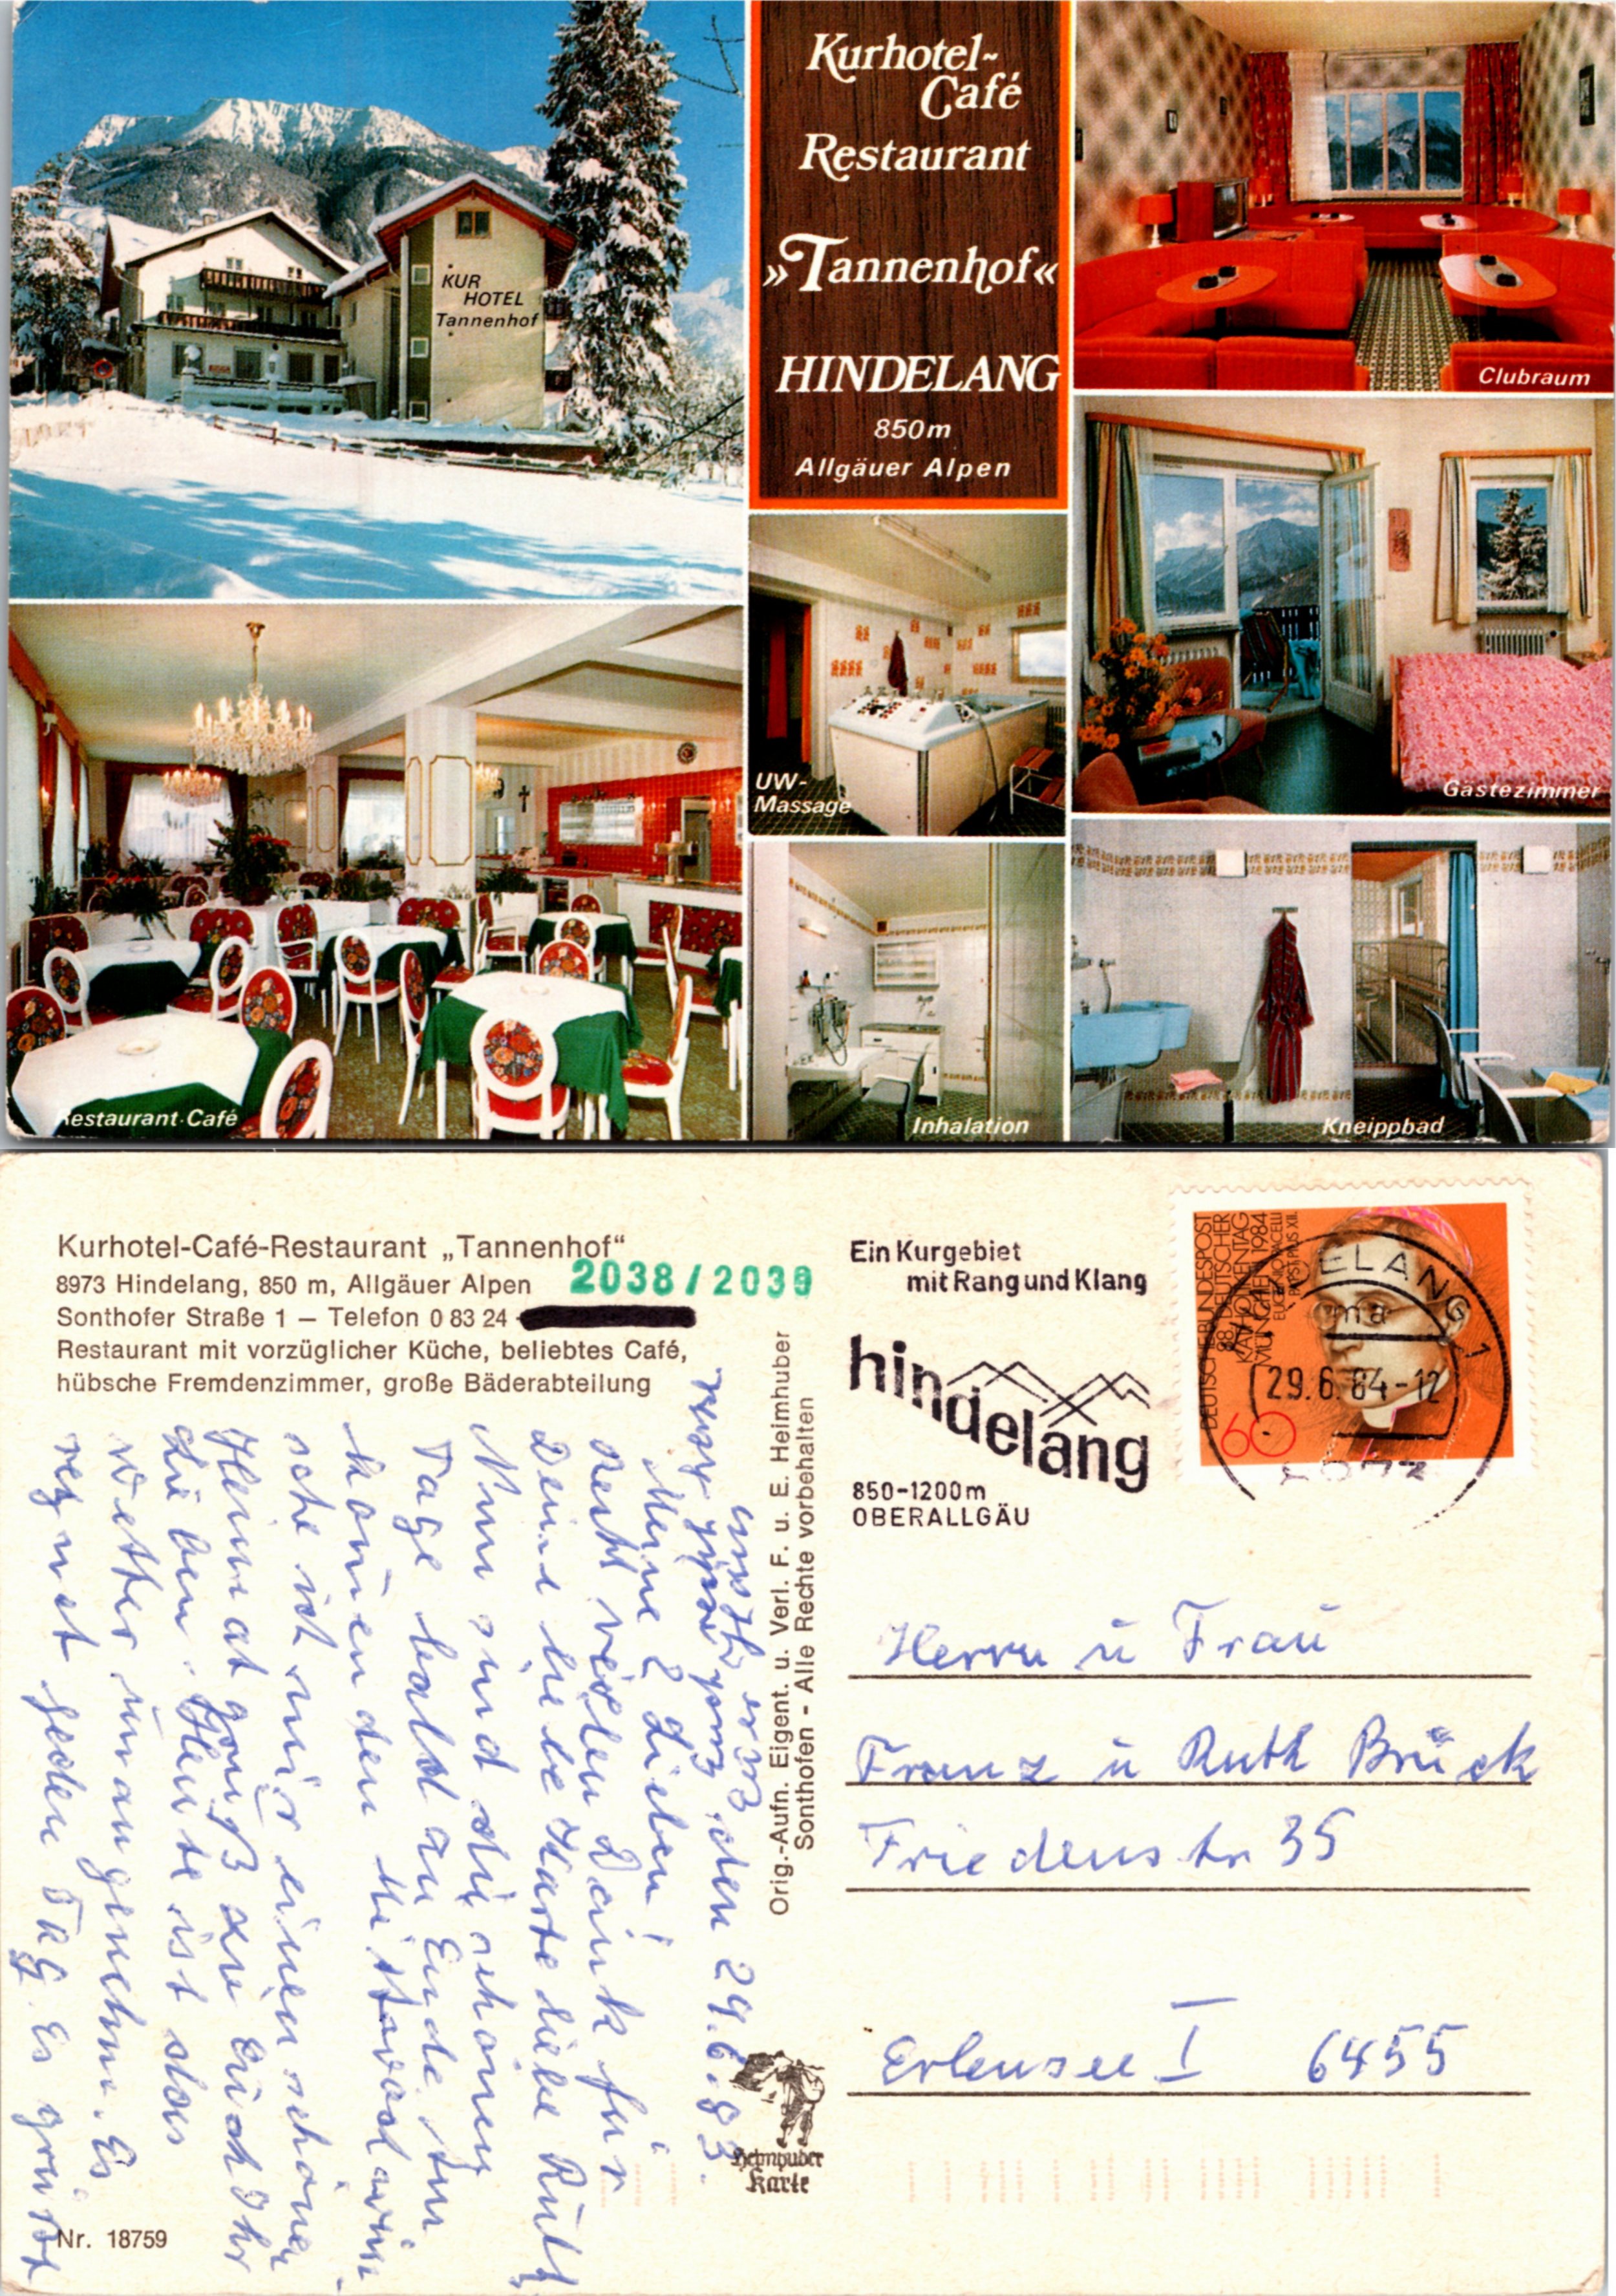 KUR
HOTEL
Tannenhof
Kurhotel-
Café
Restaurant
»Tannenhof«
HINDELANG
850m
Allgäuer Alpen
Clubraum
Gästezimmer
UW-
Massage
Restaurant-Café
Inhalation
Kneippbad
Kurhotel-Café-Restaurant „Tannenhof“
8973 Hindelang, 850 m, Allgäuer Alpen
2038/2039
Sonthofer Straße 1 – Telefon 0 83 24
Restaurant mit vorzüglicher Küche, beliebtes Café,
hübsche Fremdenzimmer, große Bäderabteilung
den 29.6.83.
Meine 2 Lieben!
Recht vielen Dank für
Deine liebe Karte liebe Ruth
Nun sind die schönen
Tage bald zu Ende
sche ich mir einen schönen
Heimat
Lieben. Heute ist das
Wetter unangenehm. Es
regnet jeden Tag. Es grüßt
Nr. 18759
Orig.-Aufn. Eigent. u. Verl. F. u. E. Heimhuber
Sonthofen - Alle Rechte vorbehalten
Heimhuber
Karte
Ein Kurgebiet
mit Rang und Klang
hindelang
850-1200m
OBERALLGÄU
DEUTSCHE BUNDESPOST
88. DEUTSCHER
KATHOLIKENTAG
MÜNCHEN 1984
EUGENIO PACELLI
PAPST PIUS XII.
60
ELANG 1
ma
29.6.84-12
Herrn u Frau
Franz u Ruth Brück
Friedenstr 35
Erlensee I 6455